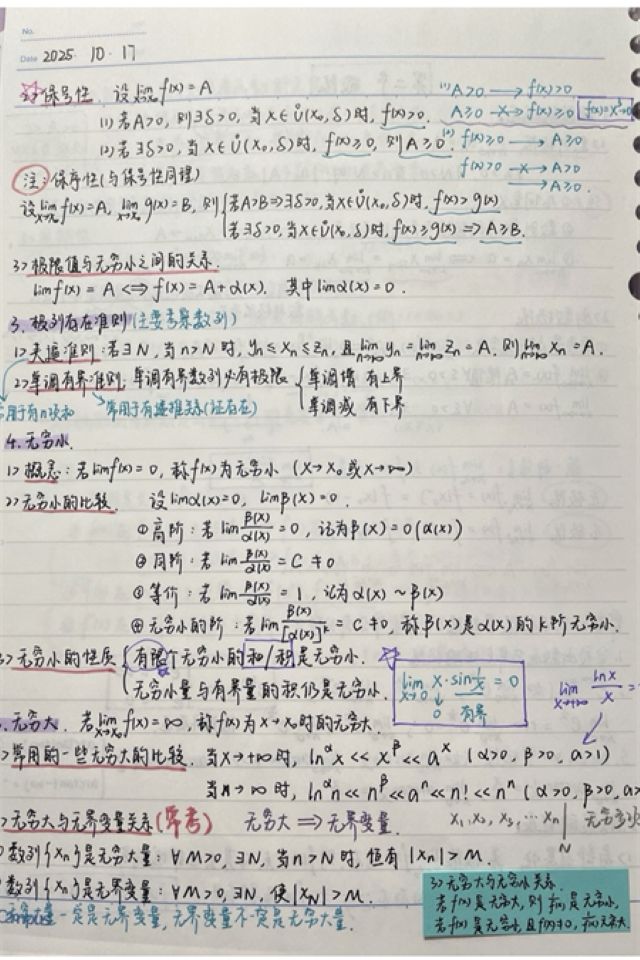 No.
Date 2025. 10. 17
2> 保号性. 设lim f(x) = A
(1) 若A>0, 则∃δ>0, 当x∈Ů(x₀,δ)时, f(x)>0.
(2) 若∃δ>0, 当x∈Ů(x₀,δ)时, f(x)≥0, 则A≥0
(1) A>0 → f(x)>0
A≥0 -×→ f(x)≥0
(2) f(x)≥0 → A≥0
f(x)>0 -×→ A>0
→ A≥0
注: 保序性(与保号性同理)
设lim x→x₀ f(x)=A, lim x→x₀ g(x)=B, 则 { 若A>B⇒∃δ>0, 当x∈Ů(x₀,δ)时, f(x)>g(x)
若∃δ>0, 当x∈Ů(x₀,δ)时, f(x)≥g(x) ⇒ A≥B.
3> 极限值与无穷小之间的关系.
limf(x) = A ⟺ f(x) = A+α(x). 其中limα(x)=0.
3. 极列存在准则(主要考察数列)
1> 夹逼准则: 若∃N, 当n>N时, yₙ≤xₙ≤zₙ, 且lim n→∞ yₙ = lim n→∞ zₙ = A. 则lim n→∞ xₙ = A.
2> 单调有界准则. 单调有界数列必有极限 { 单调增 有上界
单调减 有下界
用于有n项和 常用于有递推关系(证存在)
4. 无穷小.
1> 概念: 若limf(x)=0, 称f(x)为无穷小 (x→x₀或x→∞)
2> 无穷小的比较. 设limα(x)=0, limβ(x)=0.
① 高阶: 若lim β(x)/α(x) = 0, 记为β(x)=o(α(x))
② 同阶: 若lim β(x)/α(x) = C ≠0
③ 等价: 若lim β(x)/α(x) = 1, 记为α(x)~β(x)
④ 无穷小的阶: 若lim β(x)/[α(x)]^k = C≠0, 称β(x)是α(x)的k阶无穷小.
3> 无穷小的性质 { 有限个无穷小的和/积是无穷小.
无穷小量与有界量的积仍是无穷小.
lim x→0 x·sin 1/x = 0
0 有界
lim x→+∞ lnx/x =
无穷大. 若lim x→x₀ f(x)=∞, 称f(x)为x→x₀时的无穷大.
> 常用的一些无穷大的比较. 当x→+∞时, ln^α x << x^β << a^x (α>0, β>0, a>1)
当n→∞时, ln^α n << n^β << a^n << n! << n^n (α>0, β>0, a>
> 无穷大与无界变量关系(常考) 无穷大 ⇒ 无界变量.
x₁, x₂, x₃, … xₙ |
N
数列{xₙ}是无穷大量: ∀M>0, ∃N, 当n>N时, 恒有|xₙ|>M.
数列{xₙ}是无界变量: ∀M>0, ∃N, 使|x_N|>M.
一定是无界变量, 无界变量不一定是无穷大量.
3> 无穷大与无穷小关系.
若f(x)是无穷大, 则1/f(x)是无穷小,
若f(x)是无穷小, 且f(x)≠0, 1/f(x)无穷大.